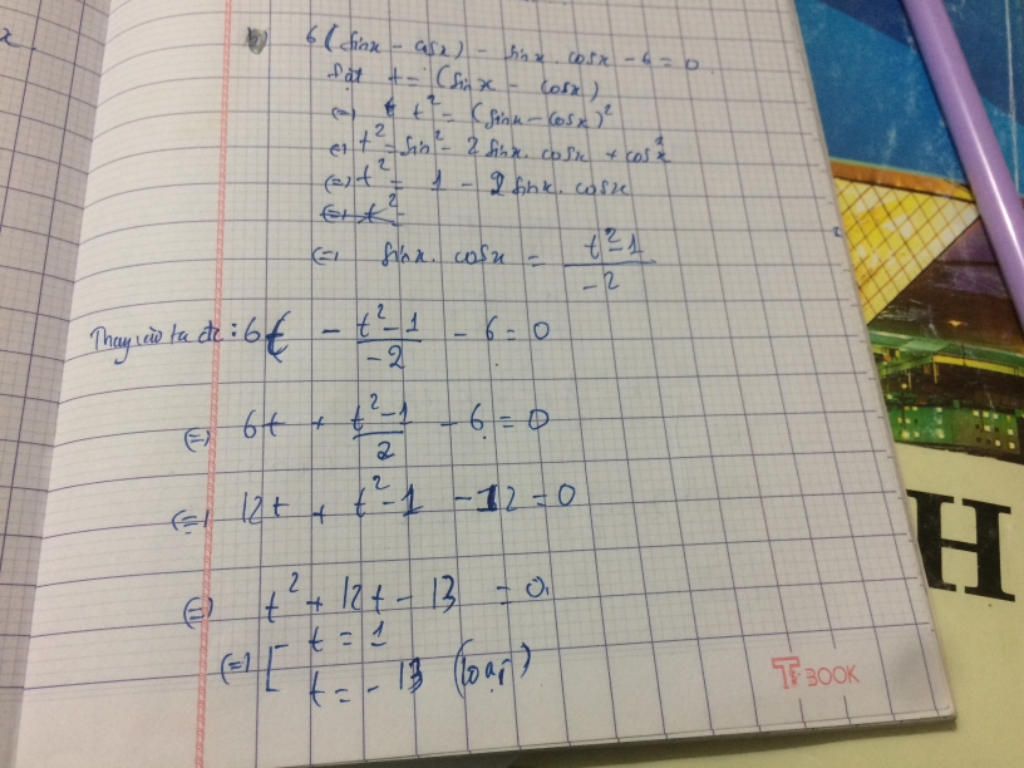 x.
6(sinx - cosx) - sinx.cosx - 6 = 0
Đặt t = (sinx - cosx)
(=) t² = (sinx - cosx)²
(=) t² = sin² - 2 sinx.cosx + cos²x
(=) t² = 1 - 2sinx.cosx
(=) t² =
(=) sinx.cosx = t²-1 / -2
Thay vào ta đc: 6t - t²-1 / -2 - 6 = 0
(=) 6t + t²-1 / 2 - 6 = 0
(=) 12t + t²-1 - 12 = 0
(=) t² + 12t - 13 = 0
(=) [ t = 1
t = -13 (loại)
H
TBOOK